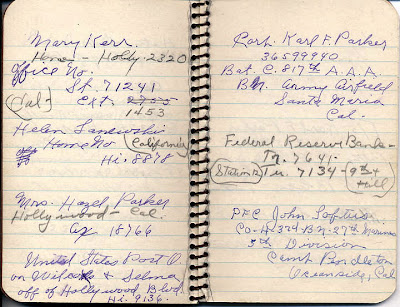 Mary Kerr.
Home - Holly-2320
Office No.
St. 71241
Cal-
ext. 2705
1453
Helen
Home No California
Hi. 8878
Mrs. Hazel Parker
Hollywood - Cal.
18766
United States Post O.
on Wilcox & Selma
off of Hollywood Blvd
Hi. 9136.
Corp. Karl F. Parker
36599940
Bat. C. 817th A.A.A.
Bn. Army Airfield
Santa Maria
Cal.
Federal Reserve Bank-
Tu. 7641-
Station 12 Tu. 7134 - 9th & Hill
P.F.C. John
Co-H-3rd Bn.-27th Marines
5th Division
Camp Pendleton
Oceanside, Cal